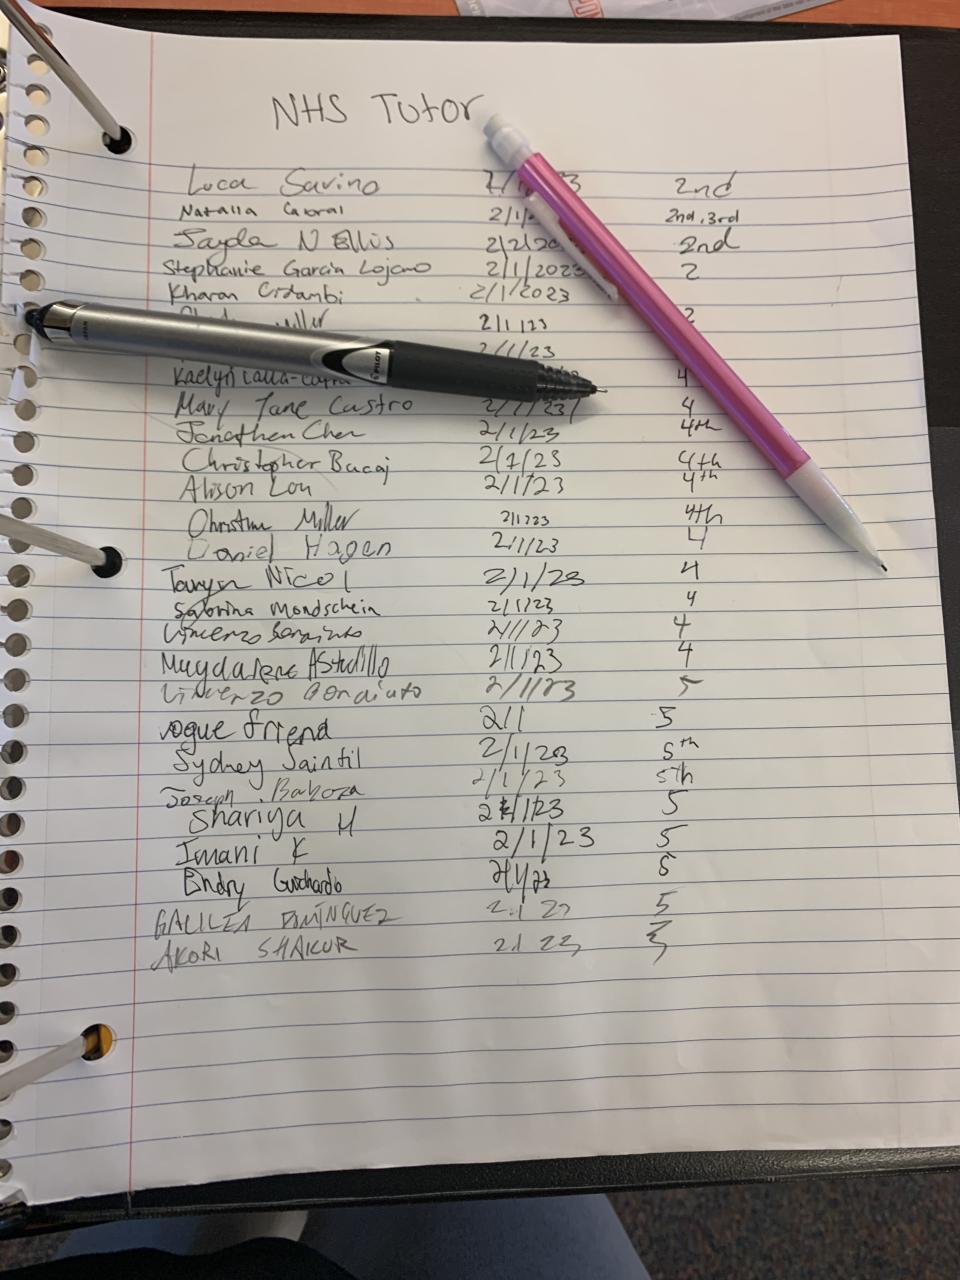 NHS Tutor
Luca Savino 23 2nd
Natalia Cabral 2/1/2 2nd, 3rd
Jayda N Ellis 2/2/20 2nd
Stephanie Garcia Lojano 2/1/2023 2
Kharan 2/1/2023
2/1/23 2
2/1/23
Kaelyn 4
Mary Jane Castro 2/1/23 4
Jonathan Chen 2/1/23 4th
Christopher Bucaj 2/1/23 4th
Alison Lou 2/1/23 4th
Christina Miller 2/1/23 4th
Daniel Hagen 2/1/23 4
PILOT
Taryn Nicol 2/1/23 4
Sabrina Mondschein 2/1/23 4
Vincenzo 2/1/23 4
Magdalena Astudillo 2/1/23 4
Vincenzo 2/1/23 5
vogue friend 2/1 5
Sydney Saintil 2/1/23 5th
Joseph Barboza 2/1/23 5th
Shariya H 2/1/23 5
Imani K 2/1/23 5
Endry Guichardo 2/1/23 5
GALILEA DOMÍNGUEZ 2.1 23 5
AKORI SHAKUR 2.1 23 5